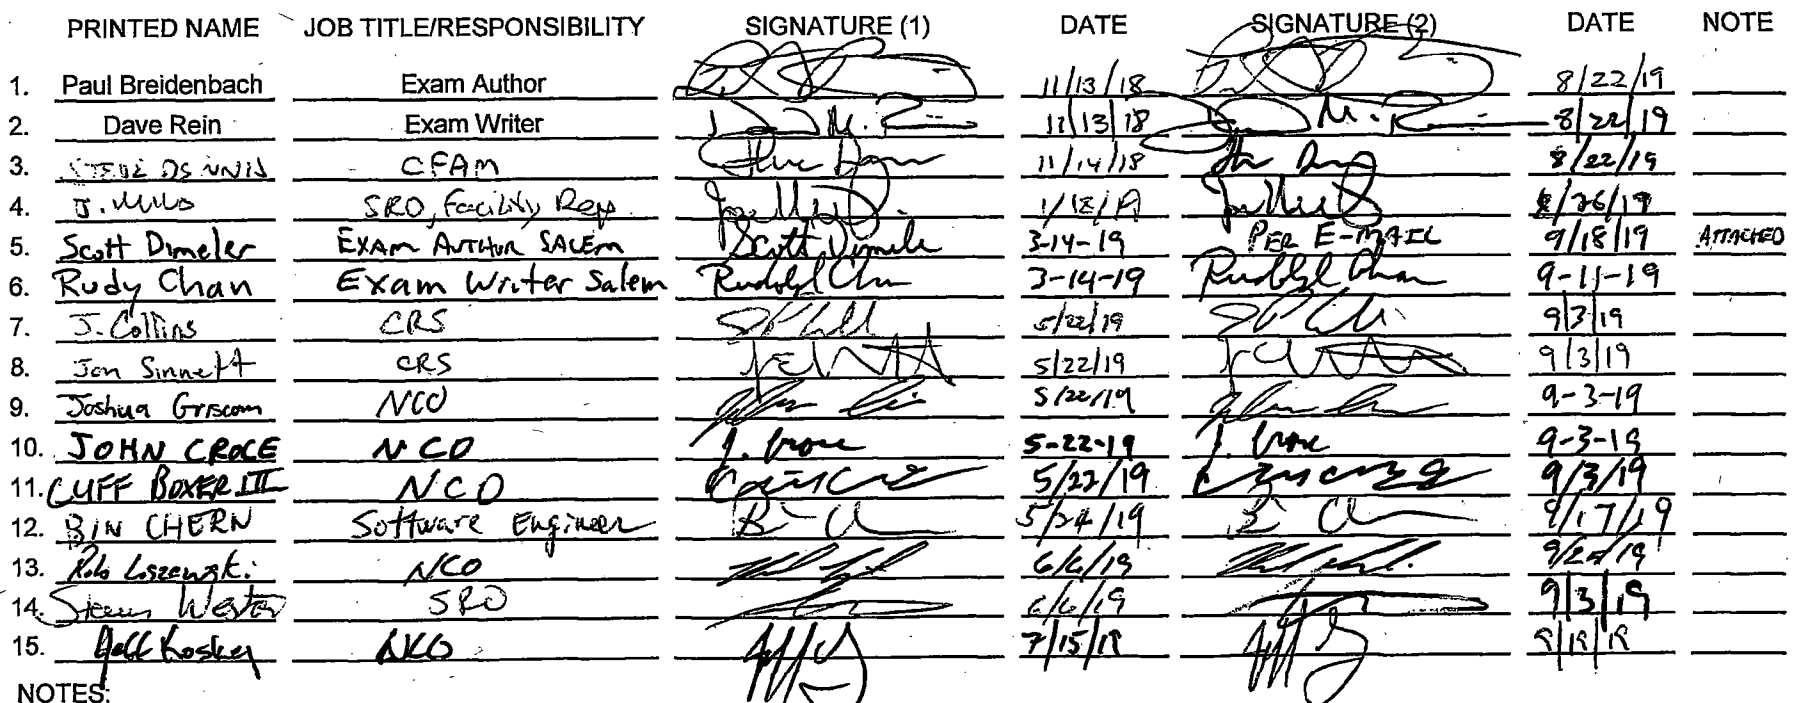 PRINTED NAME JOB TITLE/RESPONSIBILITY SIGNATURE (1) DATE SIGNATURE (2) DATE NOTE
1. Paul Breidenbach Exam Author 11/13/18 8/22/19
2. Dave Rein Exam Writer 11/13/18 8/22/19
3. CFAM 11/14/18 8/22/19
4. SRO, Facility Rep 1/18/19 8/26/19
5. Scott Dimeler EXAM AUTHOR SALEM Scott Dimeler 3-14-19 PER E-MAIL 9/18/19 ATTACHED
6. Rudy Chan Exam Writer Salem Rudolph Chan 3-14-19 Rudolph Chan 9-11-19
7. J. Collins CRS 5/22/19 9/3/19
8. Jon Sinnett CRS 5/22/19 9/3/19
9. Joshua Griscom NCO 5/22/19 9-3-19
10. JOHN CROCE NCO J. Croce 5-22-19 J. Croce 9-3-19
11. CLIFF BOXER III NCO 5/22/19 9/3/19
12. BIN CHERN Software Engineer 5/24/19 9/17/19
13. NCO 6/6/19
14. SRO 6/6/19 9/3/19
15. Jeff Koskey NCO 7/15/19 9/19/19
NOTES: